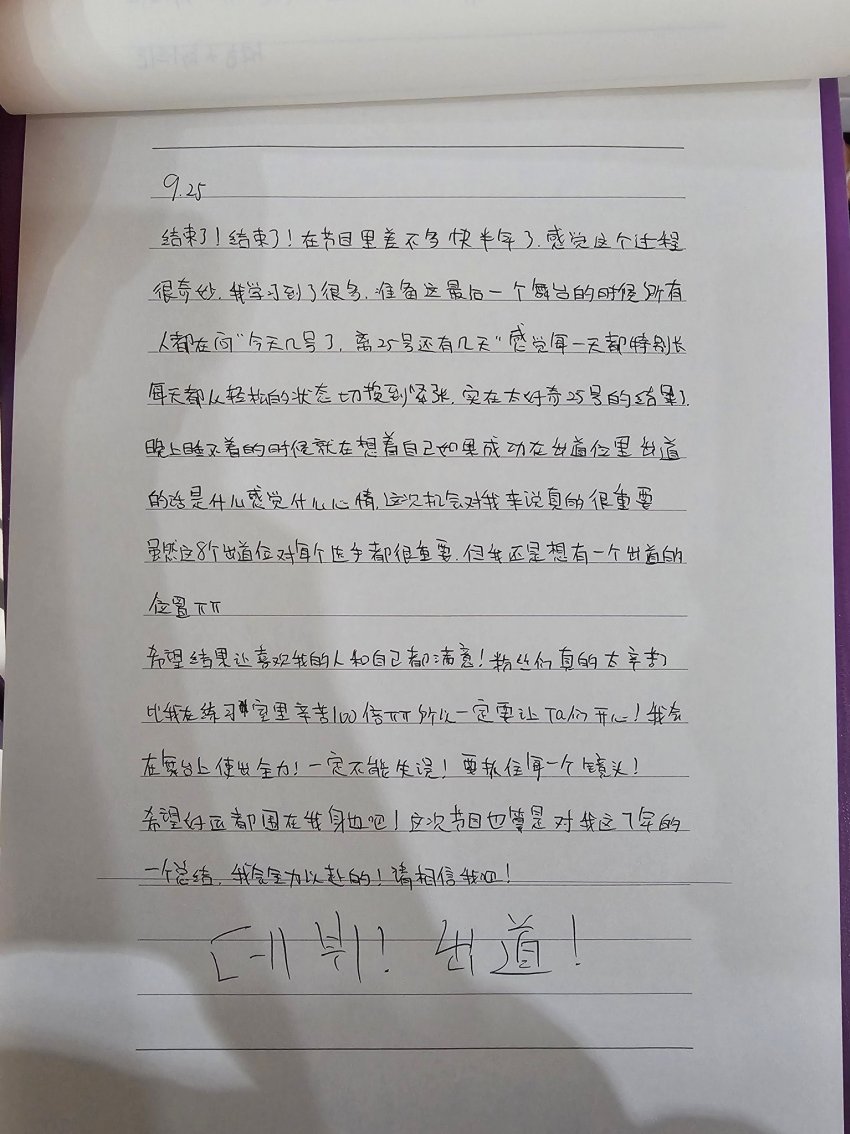 9.25
结束了!结束了!在节目里差不多快半年了.感觉这个过程
很奇妙.我学习到了很多.准备这最后一个舞台的时候所有
人都在问"今天几号了.离25号还有几天"感觉每一天都特别长
每天都从轻松的状态切换到紧张.实在太好奇25号的结果了.
晚上睡不着的时候就在想着自己如果成功在出道位里出道
的话是什么感觉什么心情.这次机会对我来说真的很重要
虽然这8个出道位对每个选手都很重要.但我还是想有一个出道的
位置ππ
希望结果让喜欢我的人和自己都满意!粉丝们真的太辛苦了
比我在练习室里辛苦100倍ππ所以一定要让Ta们开心!我会
在舞台上使出全力!一定不能失误!要抓住每一个镜头!
希望好运都围在我身边吧!这次节目也算是对我这7年的
一个总结.我会全力以赴的!请相信我吧!
데뷔! 出道!